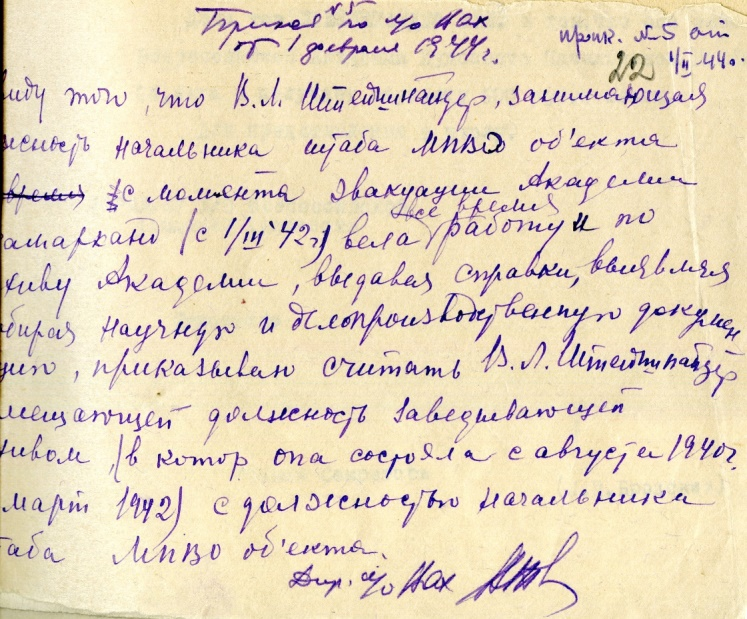 Приказ №5 по
от 1 февраля 1944 г.
прик. №5 от
1/II 44 г.
22
виду того, что В.Л. Штейнпандер, занимающая
жность начальника штаба МПВО об'екта
время (с момента эвакуации Академии
амарканд (с 1/III 42 г.) вела все время работу и по
хиву Академии, выдавая справки, выявляя
обирая научную и делопроизводственную докумен
цию, приказываю считать В.Л. Штейнпандер
мещающей должность заведывающей
хивом, (в котор она состояла с августа 1940 г.
март 1942) с должностью начальника
таба МПВО об'екта.
Дир.